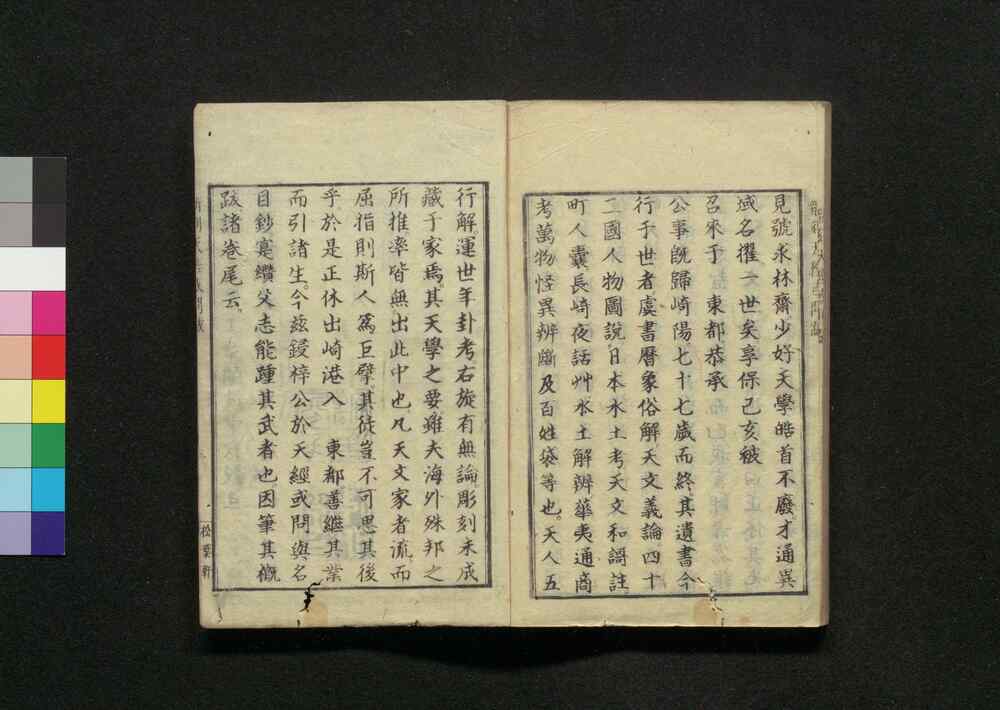 見號求林齋少好天學皓首不廢才通異
域名擢 世矣享保己亥被
召來于 東都恭承
公事既歸崎陽七十七歲而終其遺書今
行于世者虞書曆象俗解天文義論四十
二國人物圖說日本水土考天文和謌註
町人囊長崎夜話艸水土解辨華夷通商
考萬物怪異辨斷及百姓袋等也。天人五
行解。運世年卦考右旋有無論。彫刻未成
藏于家焉。其天學之要雖夫海外殊邦之
所推。率皆無出此中也凡天文家者流。而
屈指則斯人為巨擘其徒豈不可思其後
乎於是正休出崎港入 東都善繼其業
而引諸生。今茲鋟梓公於天經或問與名
目鈔寔纘父志能踵其武者也因筆其概
跋諸卷尾云。
松葉軒